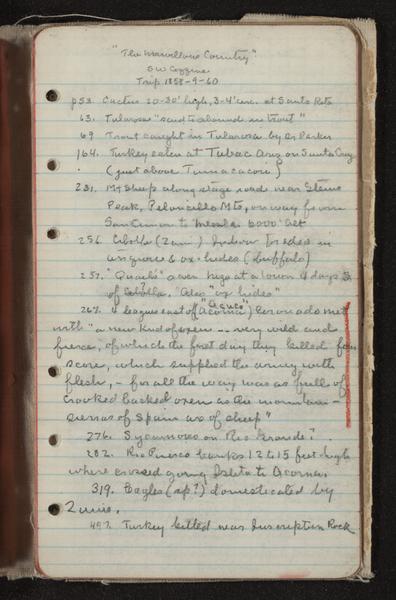 "The Marvellous Country"
S W Cozzens
Trip 1858-9-60
p53. Cactus 20-30' high, 3-4' circ. at Santa Rita
63. Tularosa "said to abound in trout"
69 Trout caught in Tularosa by Dr Parker
164. Turkey eaten at Tubac Ariz on Santa Cruz
(just above Tumacacori)
231. Mt Sheep along stage road near Steins
Peak, Peloncillo Mts, on way from
San Simon to Mesilla 6000' alt
256 Cibolla (Zuni) Indians
& ox-hides (buffalo)
257. "Quarlo" a very huge at a town 4 days S
of Cibolla. Also "ox hides"
267. 4 league east of "Acuco" (Acoma) Coronado met
with "a new kind of oxen -- very wild and
fierce, of which the first day they killed four
score, which supplied the army with
flesh, - for all the way was as full of
crooked backed oxen as the mountain -
sierras of Spain are of sheep"
276. Sycamores on Rio Grande?
282. Rio Puerco banks 12 to 15 feet high
where crossed going Isleta to Acoma.
319. Eagles (sp?) domesticated by
Zunis.
497. Turkey killed near Inscription Rock